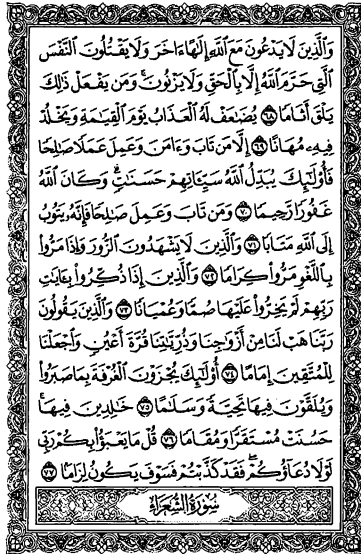 وَالَّذِينَ لَا يَدْعُونَ مَعَ اللَّهِ إِلَٰهًا ءَاخَرَ وَلَا يَقْتُلُونَ النَّفْسَ
الَّتِي حَرَّمَ اللَّهُ إِلَّا بِالْحَقِّ وَلَا يَزْنُونَ ۚ وَمَن يَفْعَلْ ذَٰلِكَ
يَلْقَ أَثَامًا ٦٨ يُضَاعَفْ لَهُ الْعَذَابُ يَوْمَ الْقِيَامَةِ وَيَخْلُدْ
فِيهِ مُهَانًا ٦٩ إِلَّا مَن تَابَ وَءَامَنَ وَعَمِلَ عَمَلًا صَالِحًا
فَأُولَٰئِكَ يُبَدِّلُ اللَّهُ سَيِّئَاتِهِمْ حَسَنَاتٍ ۗ وَكَانَ اللَّهُ
غَفُورًا رَّحِيمًا ٧٠ وَمَن تَابَ وَعَمِلَ صَالِحًا فَإِنَّهُ يَتُوبُ
إِلَى اللَّهِ مَتَابًا ٧١ وَالَّذِينَ لَا يَشْهَدُونَ الزُّورَ وَإِذَا مَرُّوا
بِاللَّغْوِ مَرُّوا كِرَامًا ٧٢ وَالَّذِينَ إِذَا ذُكِّرُوا بِـَٔايَاتِ
رَبِّهِمْ لَمْ يَخِرُّوا عَلَيْهَا صُمًّا وَعُمْيَانًا ٧٣ وَالَّذِينَ يَقُولُونَ
رَبَّنَا هَبْ لَنَا مِنْ أَزْوَاجِنَا وَذُرِّيَّاتِنَا قُرَّةَ أَعْيُنٍ وَاجْعَلْنَا
لِلْمُتَّقِينَ إِمَامًا ٧٤ أُولَٰئِكَ يُجْزَوْنَ الْغُرْفَةَ بِمَا صَبَرُوا
وَيُلَقَّوْنَ فِيهَا تَحِيَّةً وَسَلَامًا ٧٥ خَالِدِينَ فِيهَا ۚ
حَسُنَتْ مُسْتَقَرًّا وَمُقَامًا ٧٦ قُلْ مَا يَعْبَؤُا بِكُمْ رَبِّي
لَوْلَا دُعَاؤُكُمْ ۖ فَقَدْ كَذَّبْتُمْ فَسَوْفَ يَكُونُ لِزَامًا ٧٧
سُورَةُ الشُّعَرَاءِ